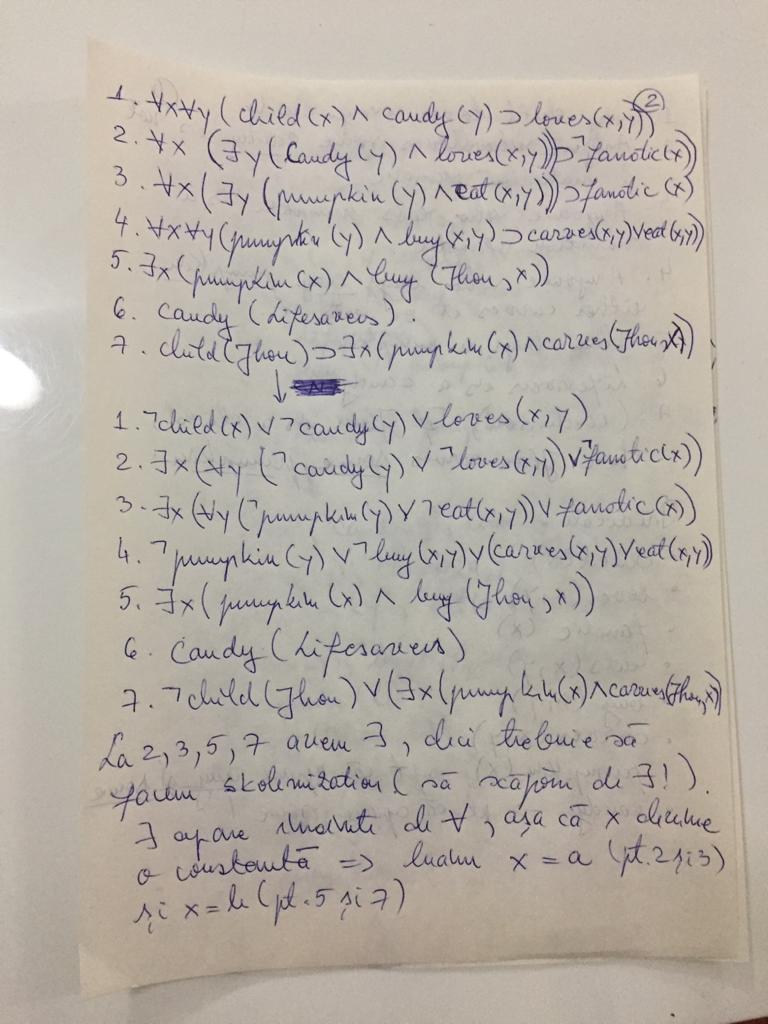 ②
1. ∀x∀y (child(x) ∧ candy(y) ⊃ loves(x,y))
2. ∀x (∃y (candy(y) ∧ loves(x,y)) ⊃ ¬fanatic(x))
3. ∀x (∃y (pumpkin(y) ∧ eat(x,y)) ⊃ fanatic(x)
4. ∀x∀y (pumpkin(y) ∧ buy(x,y) ⊃ carves(x,y) ∨ eat(x,y))
5. ∃x (pumpkin(x) ∧ buy (Jhon, x))
6. candy (Lifesavers).
7. child(Jhon) ⊃ ∃x (pumpkin(x) ∧ carves(Jhon, x))
↓
1. ¬child(x) ∨ ¬candy(y) ∨ loves(x,y)
2. ∃x (∀y (¬candy(y) ∨ ¬loves(x,y)) ∨ ¬fanatic(x))
3. ∃x (∀y (¬pumpkin(y) ∨ ¬eat(x,y)) ∨ fanatic(x))
4. ¬pumpkin(y) ∨ ¬buy(x,y) ∨ (carves(x,y) ∨ eat(x,y))
5. ∃x (pumpkin(x) ∧ buy (Jhon, x))
6. candy (Lifesavers)
7. ¬child(Jhon) ∨ (∃x (pumpkin(x) ∧ carves(Jhon, x)
La 2, 3, 5, 7 avem ∃, deci trebuie să
facem skolemization (să scăpăm de ∃!).
∃ apare înainte de ∀, așa că x devine
o constantă => luăm x = a (pt. 2 și 3)
și x = b (pt. 5 și 7)